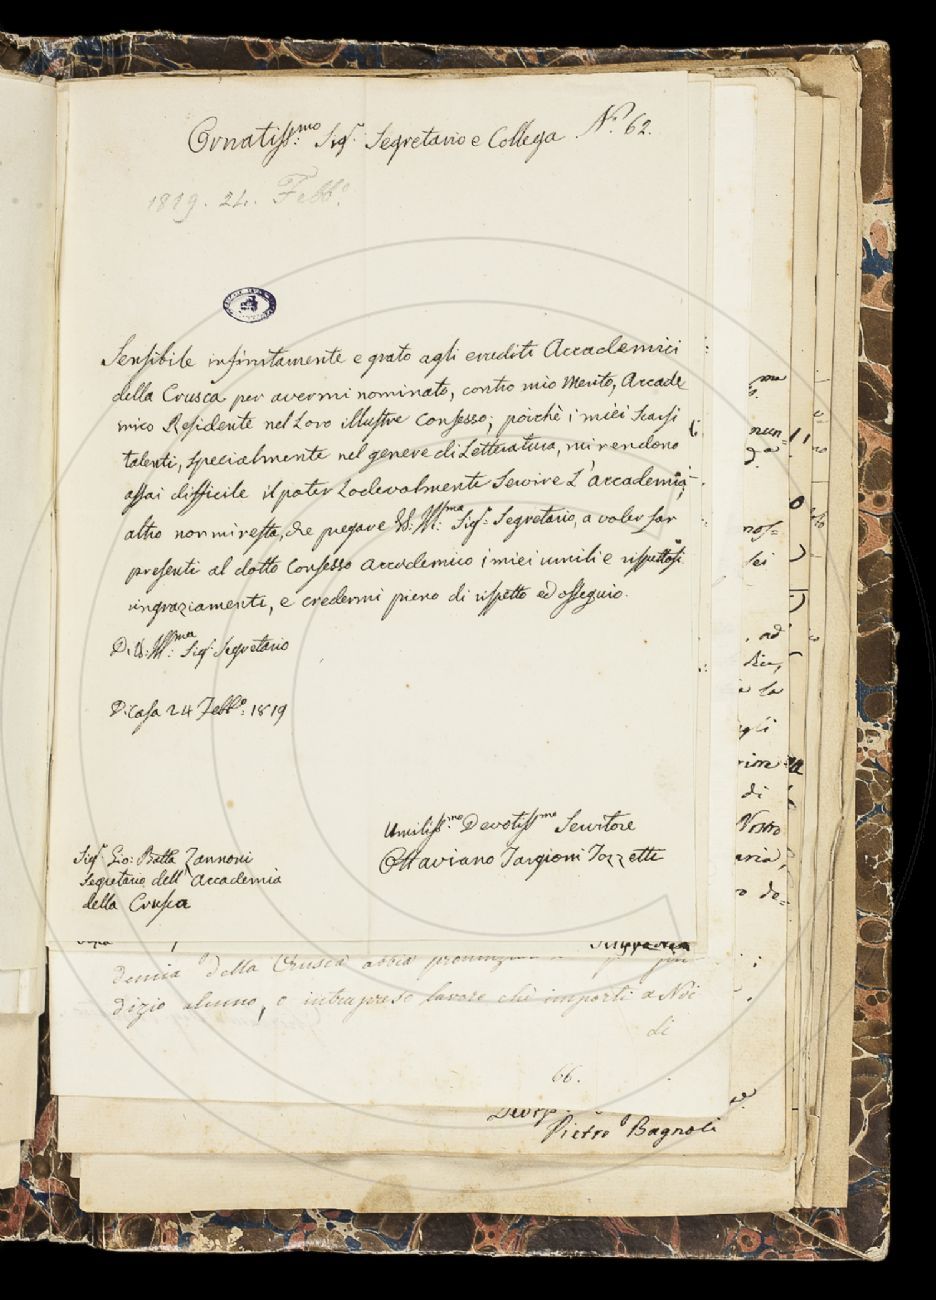 Ornatiss:mo Sig.r Segretario e Collega N.o 62.
1819. 24. Febb.o
Sensibile infinitamente e grato agli eruditi Accademici
della Crusca per avermi nominato, contro mio Merito, Accade
mico Residente nel Loro illustre Consesso; poichè i miei scarsi
talenti, specialmente nel genere di Letteratura, mi rendono
assai difficile il poter Lodevolmente Servire L'accademia;
altro non mi resta, che pregare VS. Ill:ma Sig.r Segretario, a voler far
presenti al dotto Consesso accademico i miei umili e rispettosi
ringraziamenti, e credermi pieno di rispetto ed ossequio.
Di VS. Ill:ma Sig.r Segretario
Di Casa 24 Febb.o: 1819
Umiliss:mo Devotiss:mo Servitore
Ottaviano Targioni Tozzetti
Sig.r Gio: Batta Zannoni
Segretario dell'Accademia
della Crusca
demia della Crusca abbia
dizio alcuno, o intrapreso lavoro che importi a Noi
di
66.
Pietro Bagnoli